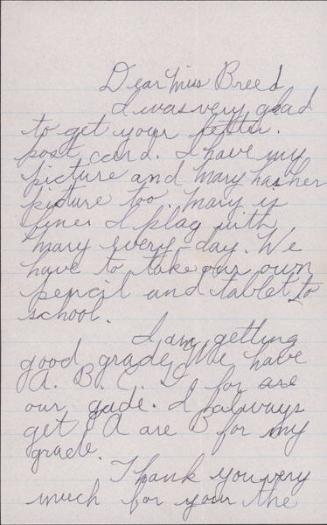 Dear Miss Breed
I was very glad
to get your letter.
post card. I have my
picture and Mary has her
picture too. Mary is
fine. I play with
Mary every-day. We
have to take our own
pencil and tablet to
school.
I am getting
good grade. We have
A. B. C. D for are
our gade. I always
get A are B for my
grade.
Thank you very
much for your the